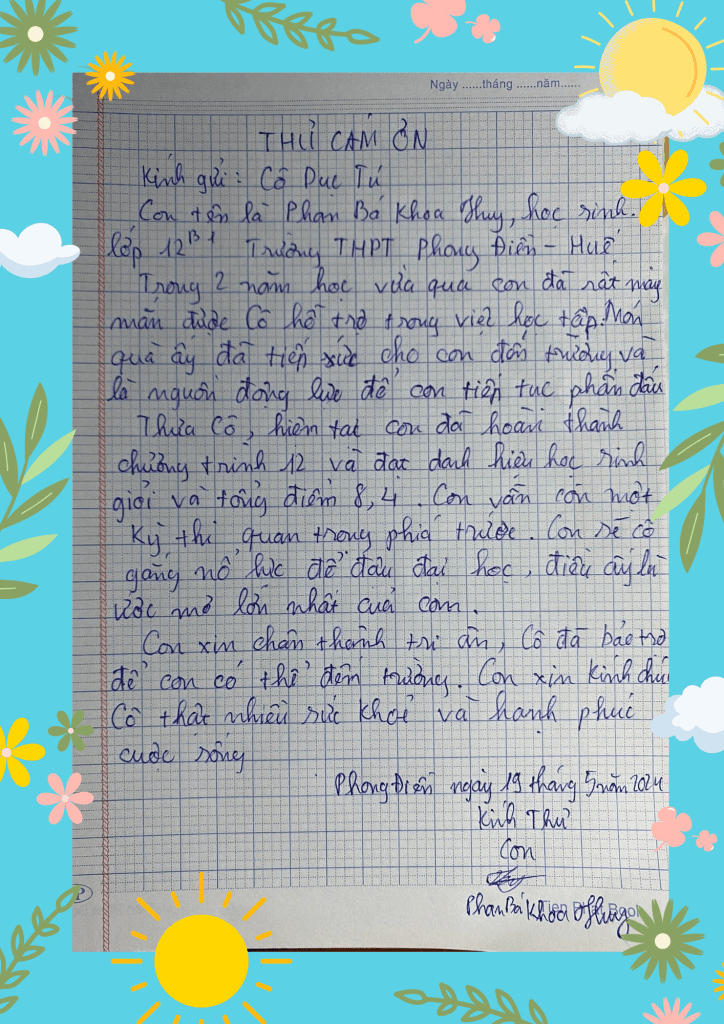 Ngày ......tháng ......năm......
THƯ CẢM ƠN
Kính gửi: Cô Dục Tú
Con tên là Phan Bá Khoa Huy, học sinh.
lớp 12B1 Trường THPT Phong Điền - Huế
Trong 2 năm học vừa qua con đã rất may
mắn được Cô hỗ trợ trong việc học tập. Món
quà ấy đã tiếp sức cho con đến trường và
là nguồn động lực để con tiếp tục phấn đấu
Thưa Cô, hiện tại con đã hoàn thành
chương trình 12 và đạt danh hiệu học sinh
giỏi và tổng điểm 8,4. Con vẫn còn một
Kỳ thi quan trọng phía trước. Con sẽ cố
gắng nổ lực để đậu đại học, điều ấy là
ước mơ lớn nhất của con.
Con xin chân thành tri ân, Cô đã bảo trợ
để con có thể đến trường. Con xin kính chúc
Cô thật nhiều sức khoẻ và hạnh phúc
cuộc sống
Phong Điền ngày 19 tháng 5 năm 2024
Kính Thư
Con
Phan Bá Khoa Huy